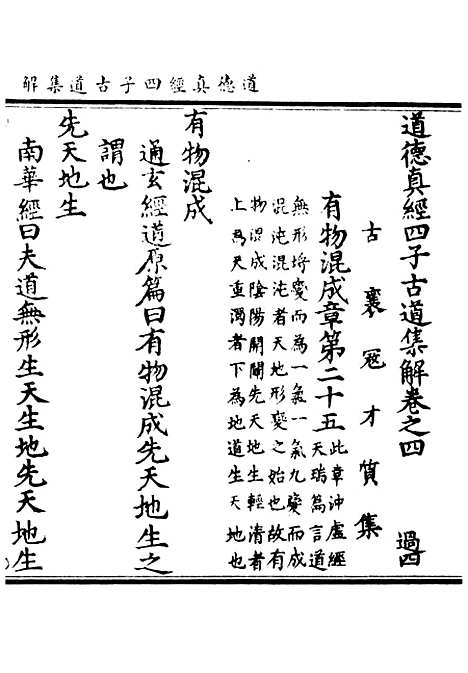 道德真經四子古道集解
道德真經四子古道集解卷之四 過四
古襄寇才質集
有物混成章第二十五
此章沖虛經
天瑞篇言道
無形埒變而為一氣一氣九變而成
混沌混沌者天地形變之始也故有
物混成陰陽開闢先天地生輕清者
上為天重濁者下為地道生天地也
有物混成
通玄經道原篇曰有物混成先天地生之
謂也
先天地生
南華經曰夫道無形生天生地先天地生